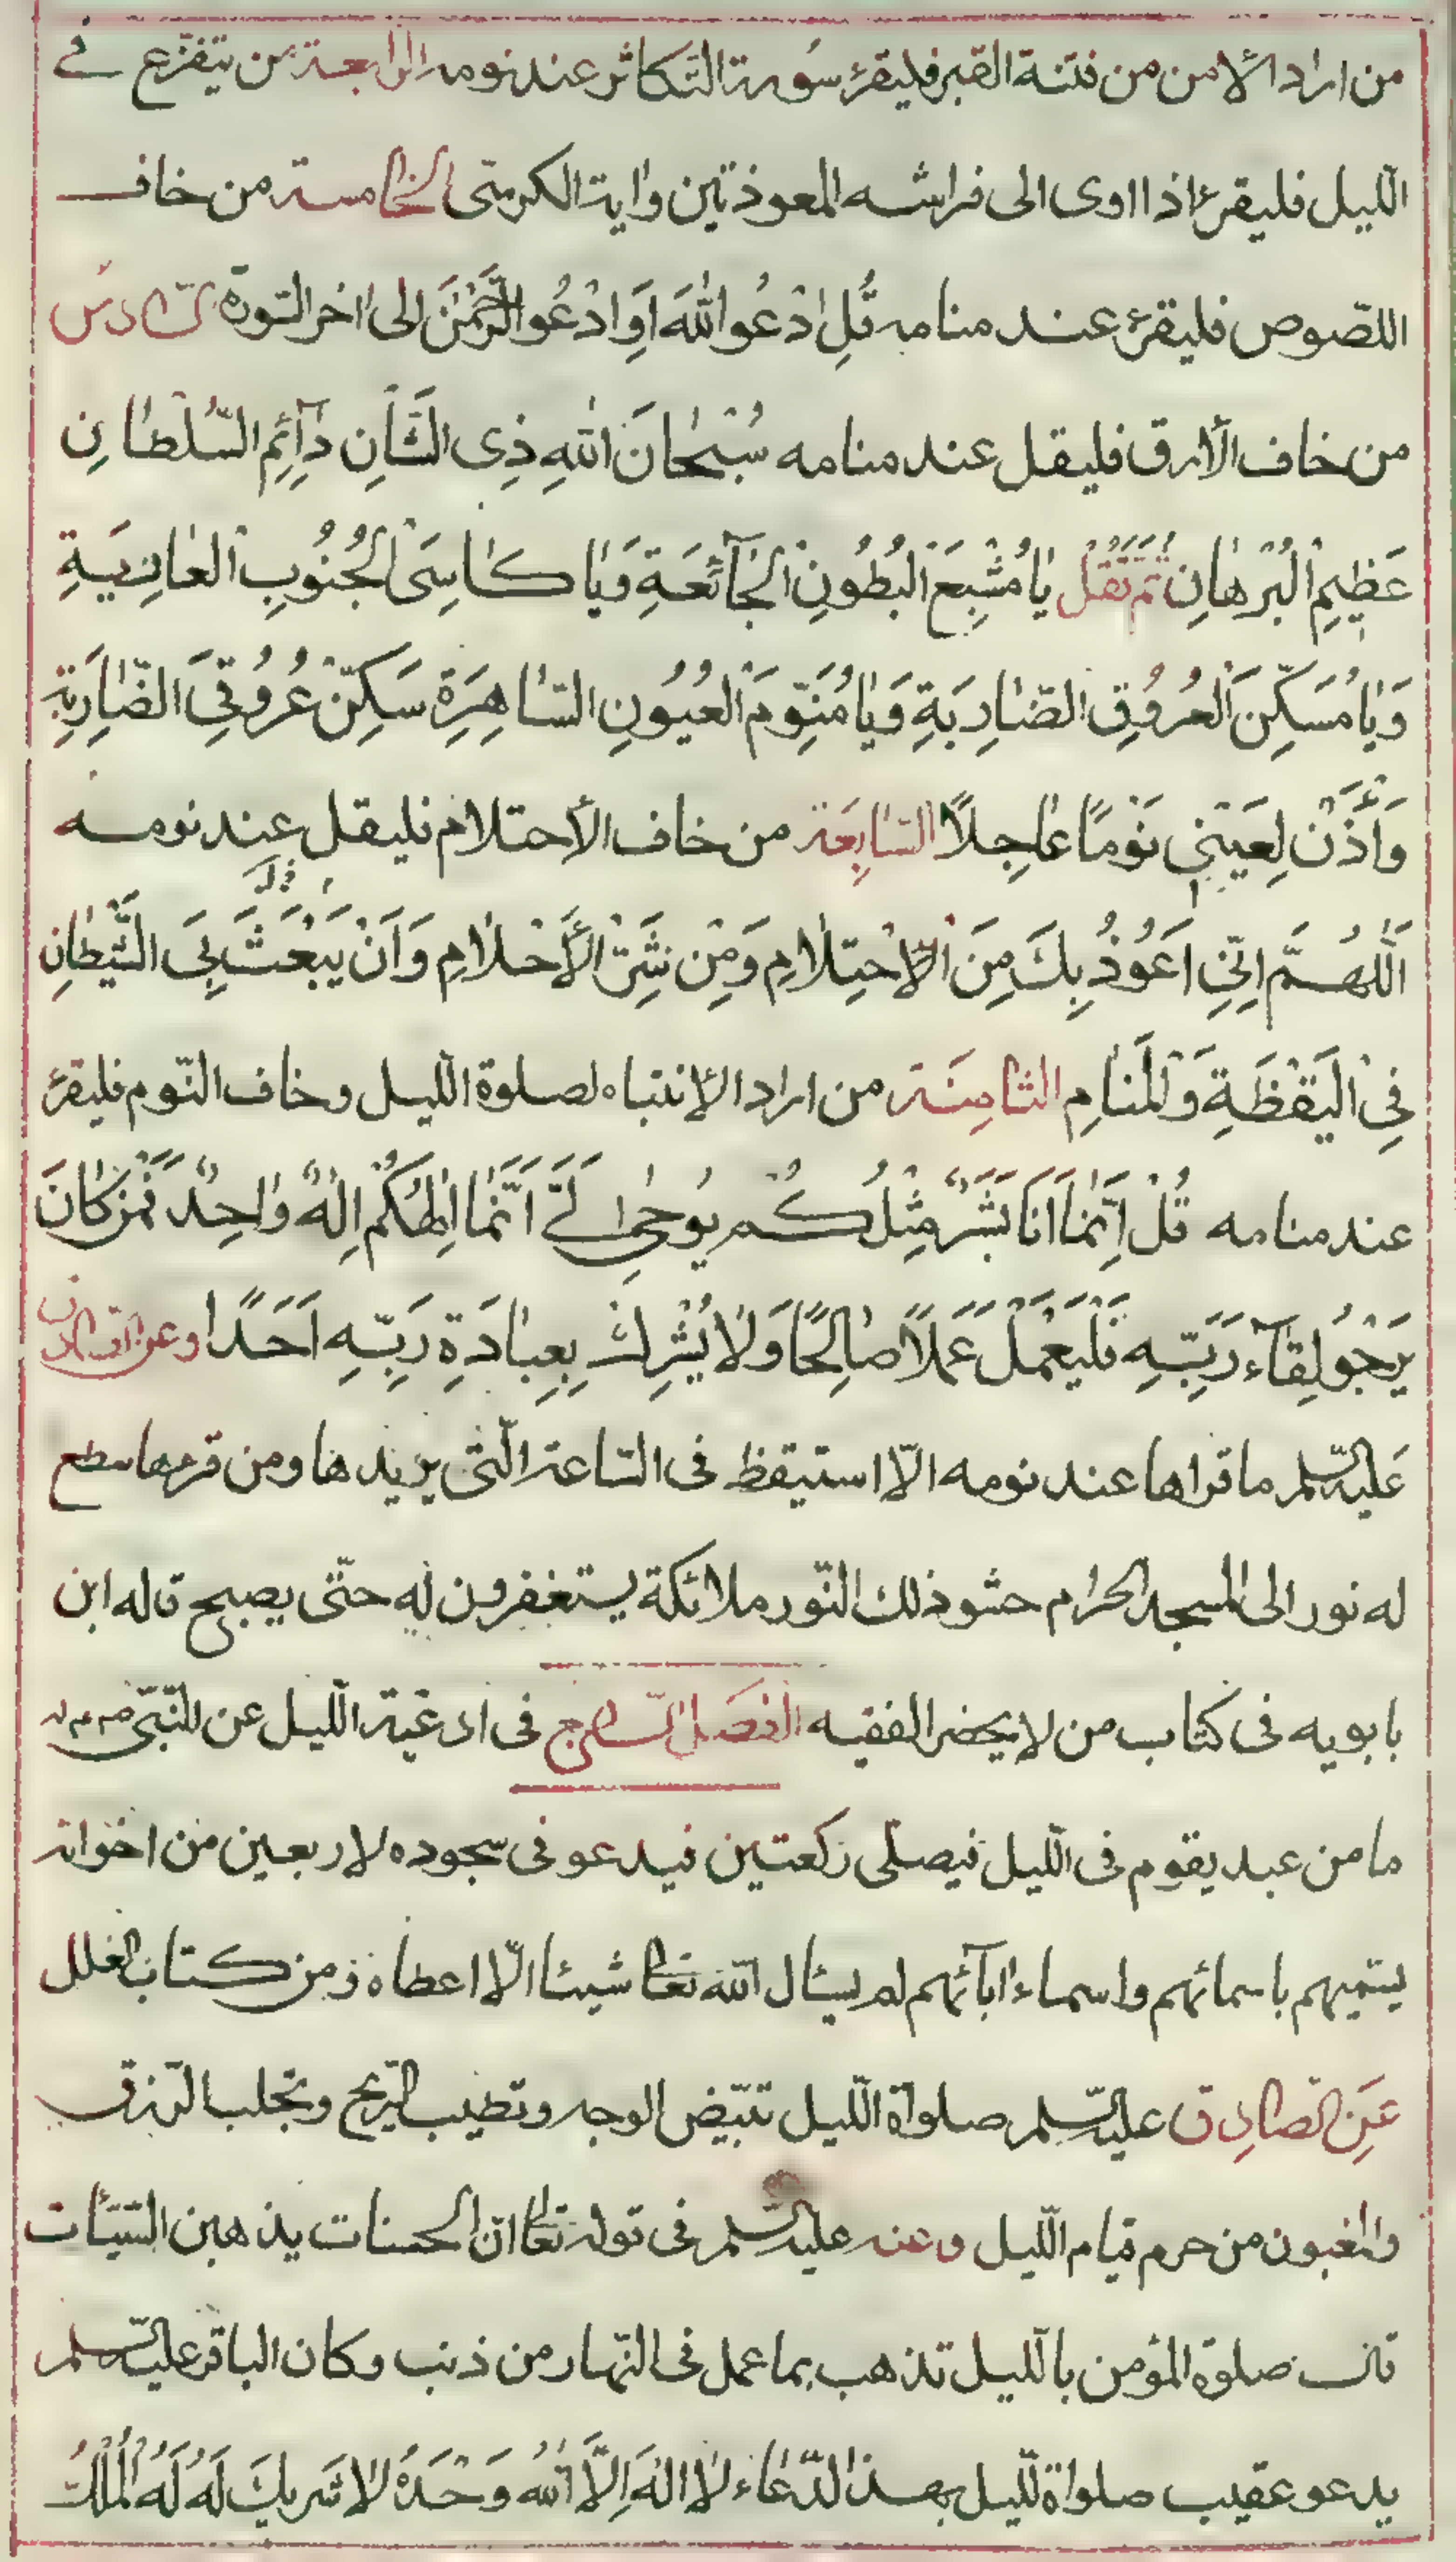 من اراد الأمن من فتنة القبر فليقرئ سُورة التّكاثر عند نومه الرابعة من يتفزّع في
اللّيل فليقرئ اذا اوى الى فراشه المعوذتين واية الكرسىّ الخامسة من خاف
اللصّوص فليقرئ عند منامه قُلِ ادْعُوا اللّٰهَ اَوِ ادْعُوا الرَّحْمٰنَ الى اٰخر السّورة السّادس
من خاف الأرق فليقل عند منامه سُبْحٰانَ اللّٰهِ ذِى الشَّأنِ دٰآئِمِ السُّلْطٰانِ
عَظِيمِ الْبُرْهٰانِ ثُمَّ تَقُلْ يٰا مُشْبِعَ الْبُطُونِ الْجٰآئِعَةِ وَيٰا كٰاسِىَ الْجُنُوبِ الْعٰارِيَةِ
وَيٰا مُسَكِّنَ الْعُرُوُقِ الضّٰارِبَةِ وَيٰا مُنَوِّمَ الْعُيُونِ السّٰاهِرَةِ سَكِّنْ عُرُوقِىَ الضّٰارِبَةِ
وَأْذَنْ لِعَيْنِى نَوْمًا عٰاجِلاً السّٰابِعَة من خاف الأحتلام فليقل عند نومه
اَللّٰهُمَّ اِنِّى اَعُوُذُ بِكَ مِنَ الْاِحْتِلٰامِ وَمِن شَرِّ الْأَحْلٰامِ وَاَنْ يَبْعَثَ بِىَ الشَّيْطٰانِ
فِى الْيَقْظَةِ وَالْمَنٰامِ الثّٰامِنَة من اراد الإنتباه لصلوة اللّيل وخاف النّوم فليقرئ
عند منامه قُلْ اِنَّمٰا اَنَا بَشَرٌ مِثْلُكُمْ يُوحٰى اِلَىَّ اَنَّمٰا اِلٰهُكُمْ اِلٰهٌ وٰاحِدٌ فَمَنْ كٰانَ
يَرْجُو لِقٰآءَ رَبِّهِ فَلْيَعْمَلْ عَمَلاً صٰالِحًا وَلٰا يُشْرِكْ بِعِبٰادَةِ رَبِّهِ اَحَدًا وعن الصادق
عَليه السّلم ما قراها عند نومه الّا استيقظ فى السّاعة الّتى يريدها ومن قرءها سطع
له نور الى المسجد الحرٰام حشو ذلك النّور ملائكة يستغفرون له حتّى يصبح قاله ابن
بابويه فى كتاب من لا يحضر الفقيه الفصل السّابع فى ادعية اللّيل عن النّبىّ
ما من عبد يقوم فى اللّيل فيصلّى ركعتين فيدعو فى سجوده لاربعين من اخوانه
يسمّيهم باسمائهم واسماء اٰبآئهم لم يسئال اللّه تعٰالى شيئا الّا اعطاه ومن كتاب العلل
عَنِ الصّادِق عليه السّلم صلوٰة اللّيل تبيّض الوجه وتطيب الرّيح وتجلب الرّزق
والمغبون من حرم قيام اللّيل وعنه عليه السّلم فى قوله تعالى انّ الحسنات يذهبن السّيئات
قال صلوة المؤمن باللّيل تذهب بما عمل فى النّهار من ذنب وكان الباقر عليه السّلم
يدعو عقيب صلواة اللّيل بهذا الدّعٰاء لٰا اِلٰهَ اِلَّا اللّٰهُ وَحْدَهُ لٰا شَرِيكَ لَهُ لَهُ الْمُلْكُ